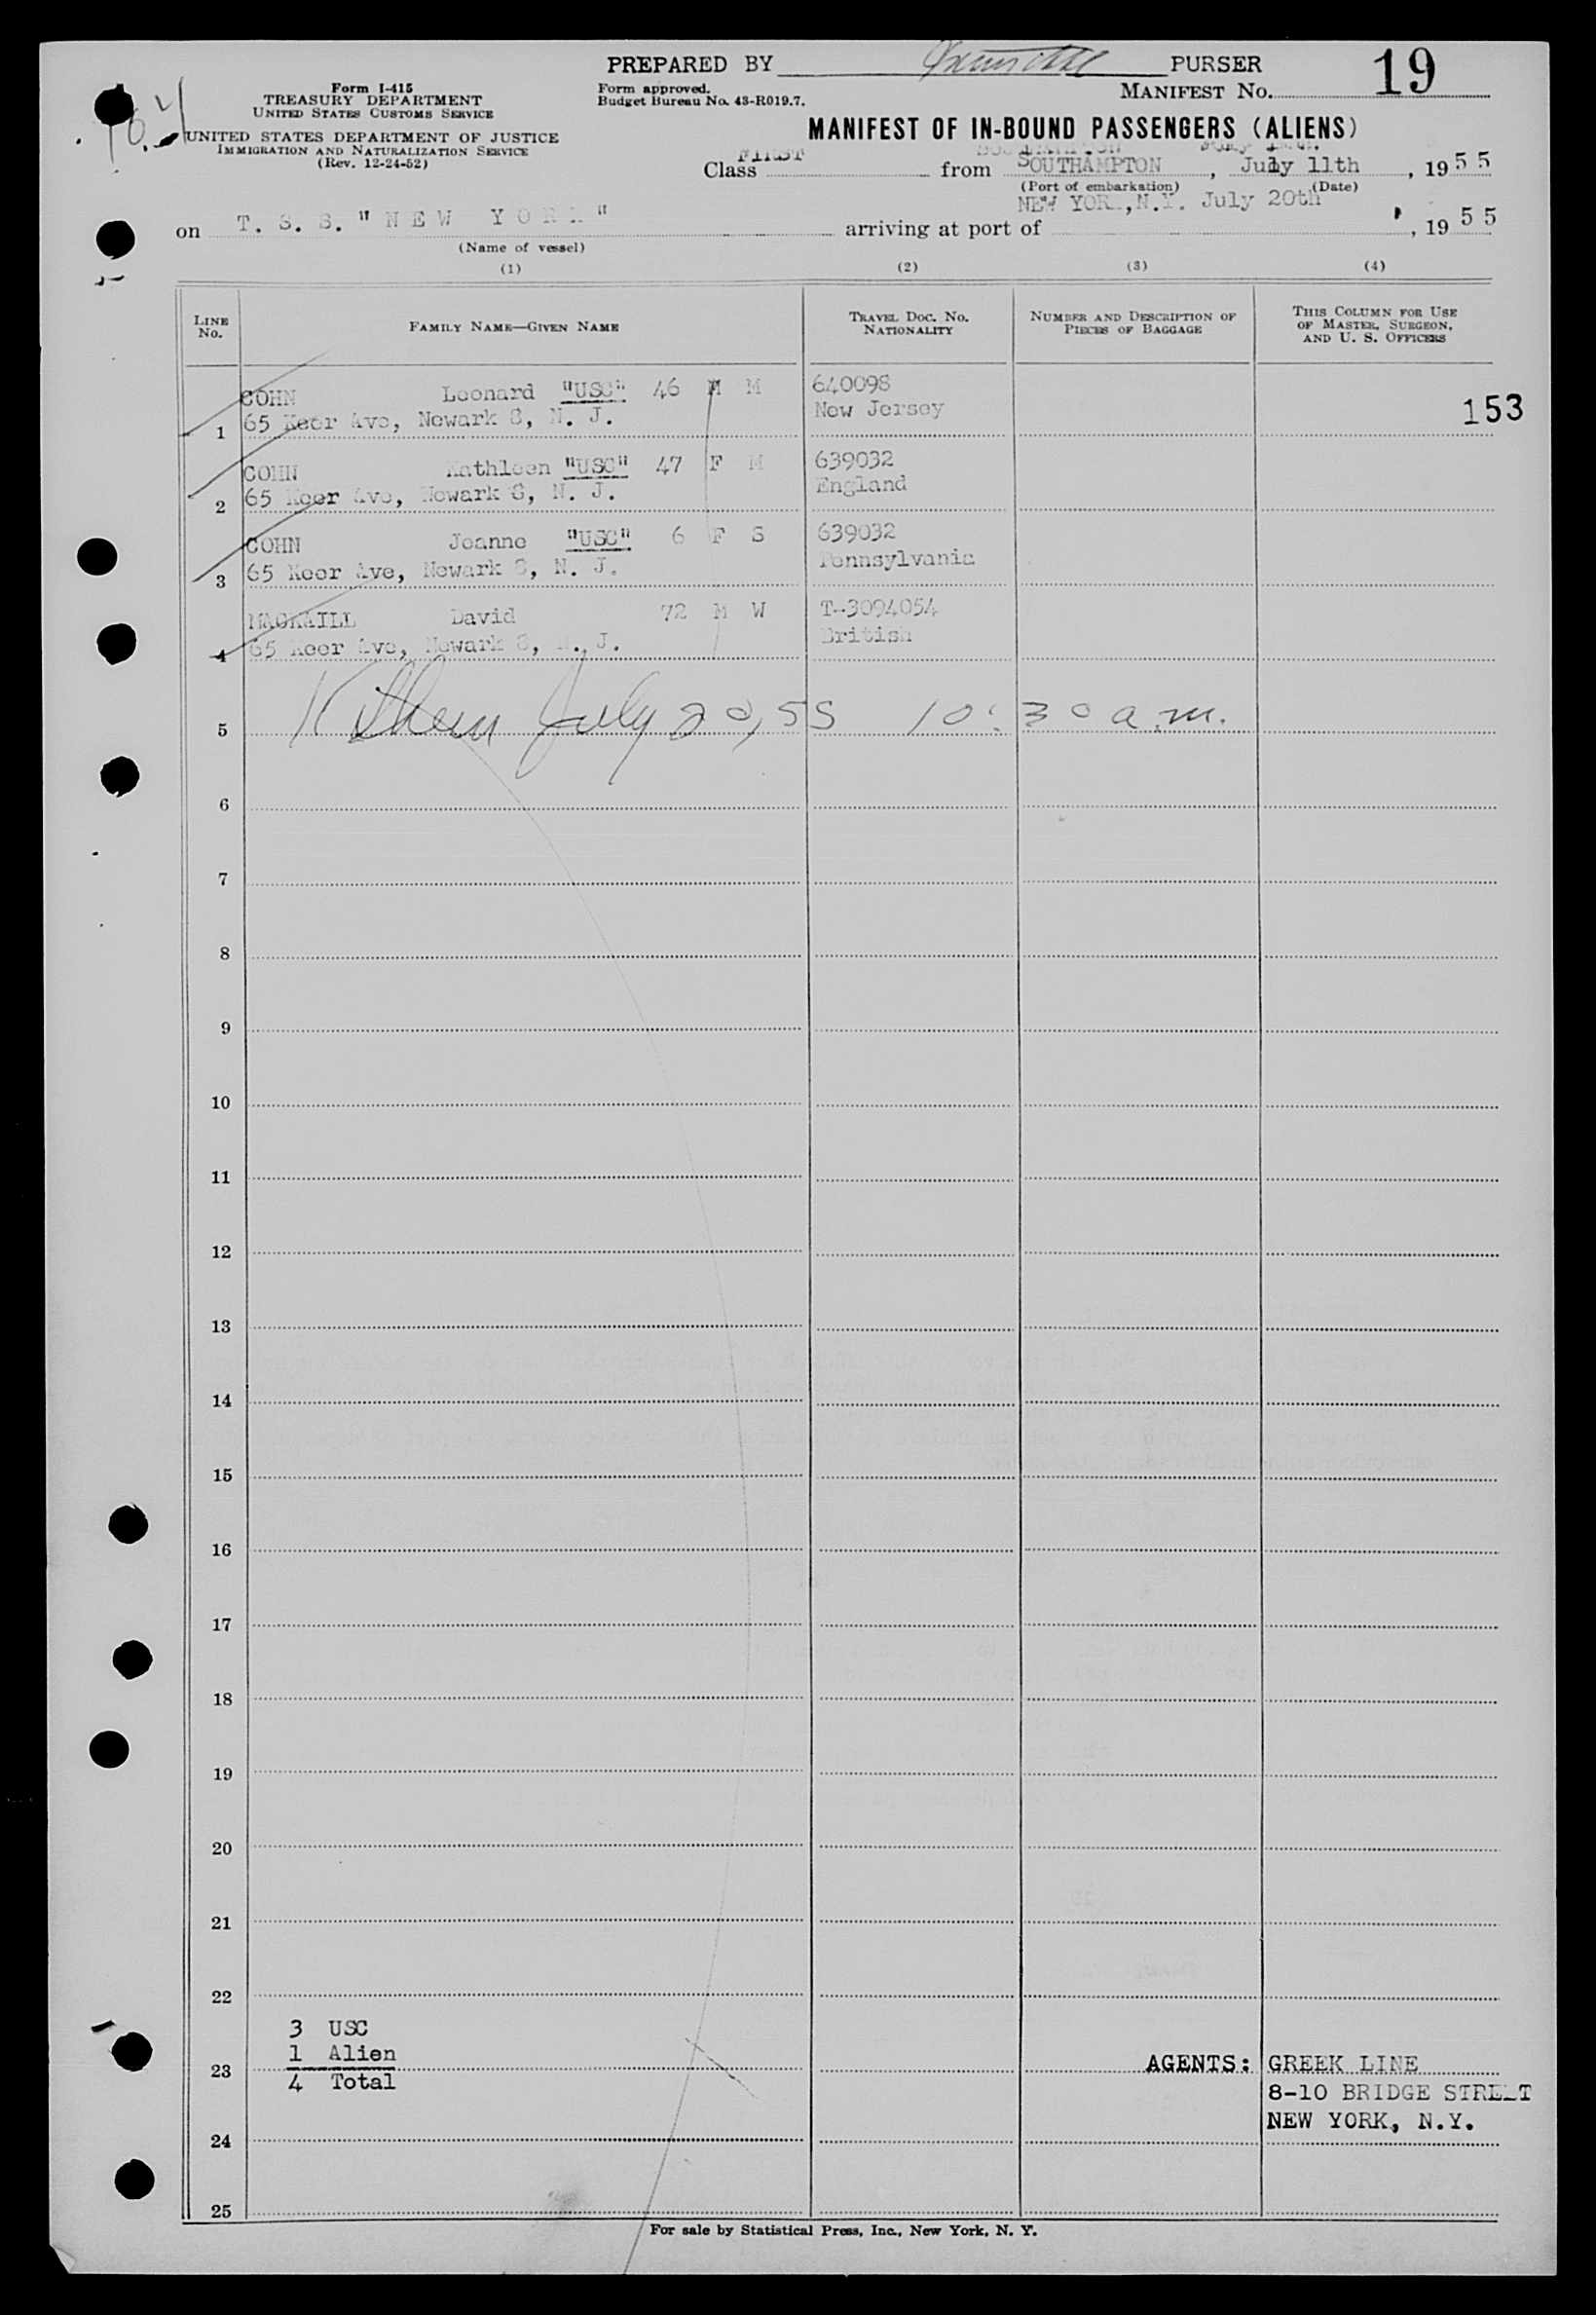 PREPARED BY PURSER 19
Form I-415
TREASURY DEPARTMENT
UNITED STATES CUSTOMS SERVICE
Form approved.
Budget Bureau No. 43-R019.7.
MANIFEST No.
UNITED STATES DEPARTMENT OF JUSTICE
IMMIGRATION AND NATURALIZATION SERVICE
(Rev. 12-24-52)
MANIFEST OF IN-BOUND PASSENGERS (ALIENS)
Class FIRST from SOUTHAMPTON, July 11th, 1955
(Port of embarkation) (Date)
on T. S. S. "NEW YORK" arriving at port of NEW YORK, N.Y. July 20th, 1955
(Name of vessel)
(1) (2) (3) (4)
LINE No. FAMILY NAME—GIVEN NAME TRAVEL DOC. No. NATIONALITY NUMBER AND DESCRIPTION OF PIECES OF BAGGAGE THIS COLUMN FOR USE OF MASTER, SURGEON, AND U. S. OFFICERS
COHN Leonard "USC" 46 M M 640098
1 65 Keer Ave, Newark 8, N. J. New Jersey 153
COHN Kathleen "USC" 47 F M 639032
2 65 Keer Ave, Newark 8, N. J. England
COHN Joanne "USC" 6 F S 639032
3 65 Keer Ave, Newark 8, N. J. Pennsylvania
MACKAILL David 72 M W T-3094054
4 65 Keer Ave, Newark 8, N. J. British
5 July 20, 55 10:30 a.m.
6
7
8
9
10
11
12
13
14
15
16
17
18
19
20
21
22
3 USC
1 Alien
23 AGENTS: GREEK LINE
4 Total
8-10 BRIDGE STREET
NEW YORK, N.Y.
24
25
For sale by Statistical Press, Inc., New York, N. Y.